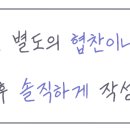 별도의 협찬이나
후 솔직하게 작성